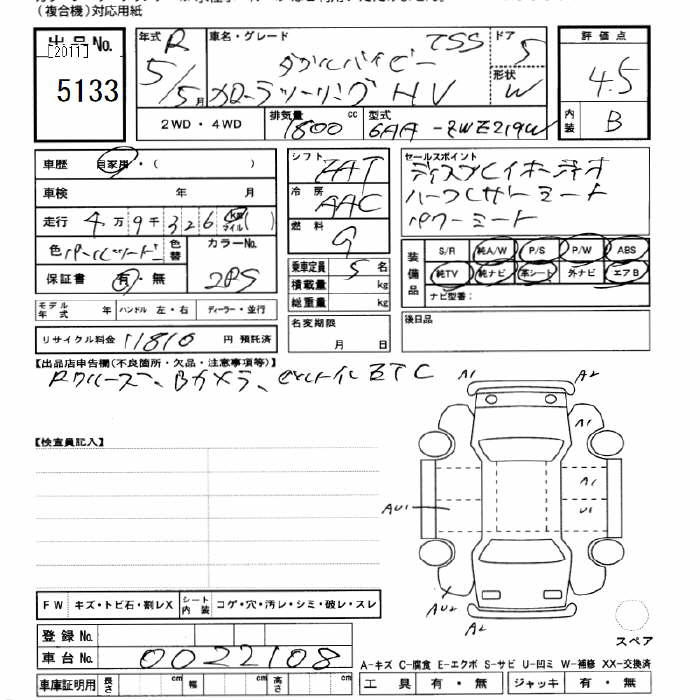 (複合機)対応用紙
出品No.
[2011]
5133
年式 R 5/5月
車名・グレード ダブルバイビー TSS
カローラツーリング HV
ドア 5
形状 W
評価点
4.5
内装 B
2WD・4WD
排気量 1800 cc
型式 6AA-ZWE219W
車歴 自家用・( )
車検 年 月
走行 4万9千326 km マイル ( )
色 パールツートン 色替
カラーNo. 2PS
保証書 有・無
シフト FAT
冷房 AAC
燃料 G
乗車定員 5名
積載量 kg
総重量 kg
名変期限
月 日
セールスポイント
ディスプレイオーディオ
ハーフレザーシート
パワーシート
装備品
S/R 純A/W P/S P/W ABS
純TV 純ナビ 革シート 外ナビ エアB
ナビ型番:
後日品
モデル年式 年 ハンドル 左・右 ディーラー・並行
リサイクル料金 11810 円 預託済
【出品店申告欄(不良箇所・欠品・注意事項等)】
Rクルーズ、Bカメラ、ビルトインETC
【検査員記入】
A1 A2
A1
A1
U1
AU1
AU2
A2
スペア
FW キズ・トビ石・割レX シート内装 コゲ・穴・汚レ・シミ・破レ・スレ
登録No.
車台No. 0022108
車庫証明用 長さ cm 幅 cm 高さ cm
A-キズ C-腐食 E-エクボ S-サビ U-凹ミ W-補修 XX-交換済
工具 有・無 ジャッキ 有・無